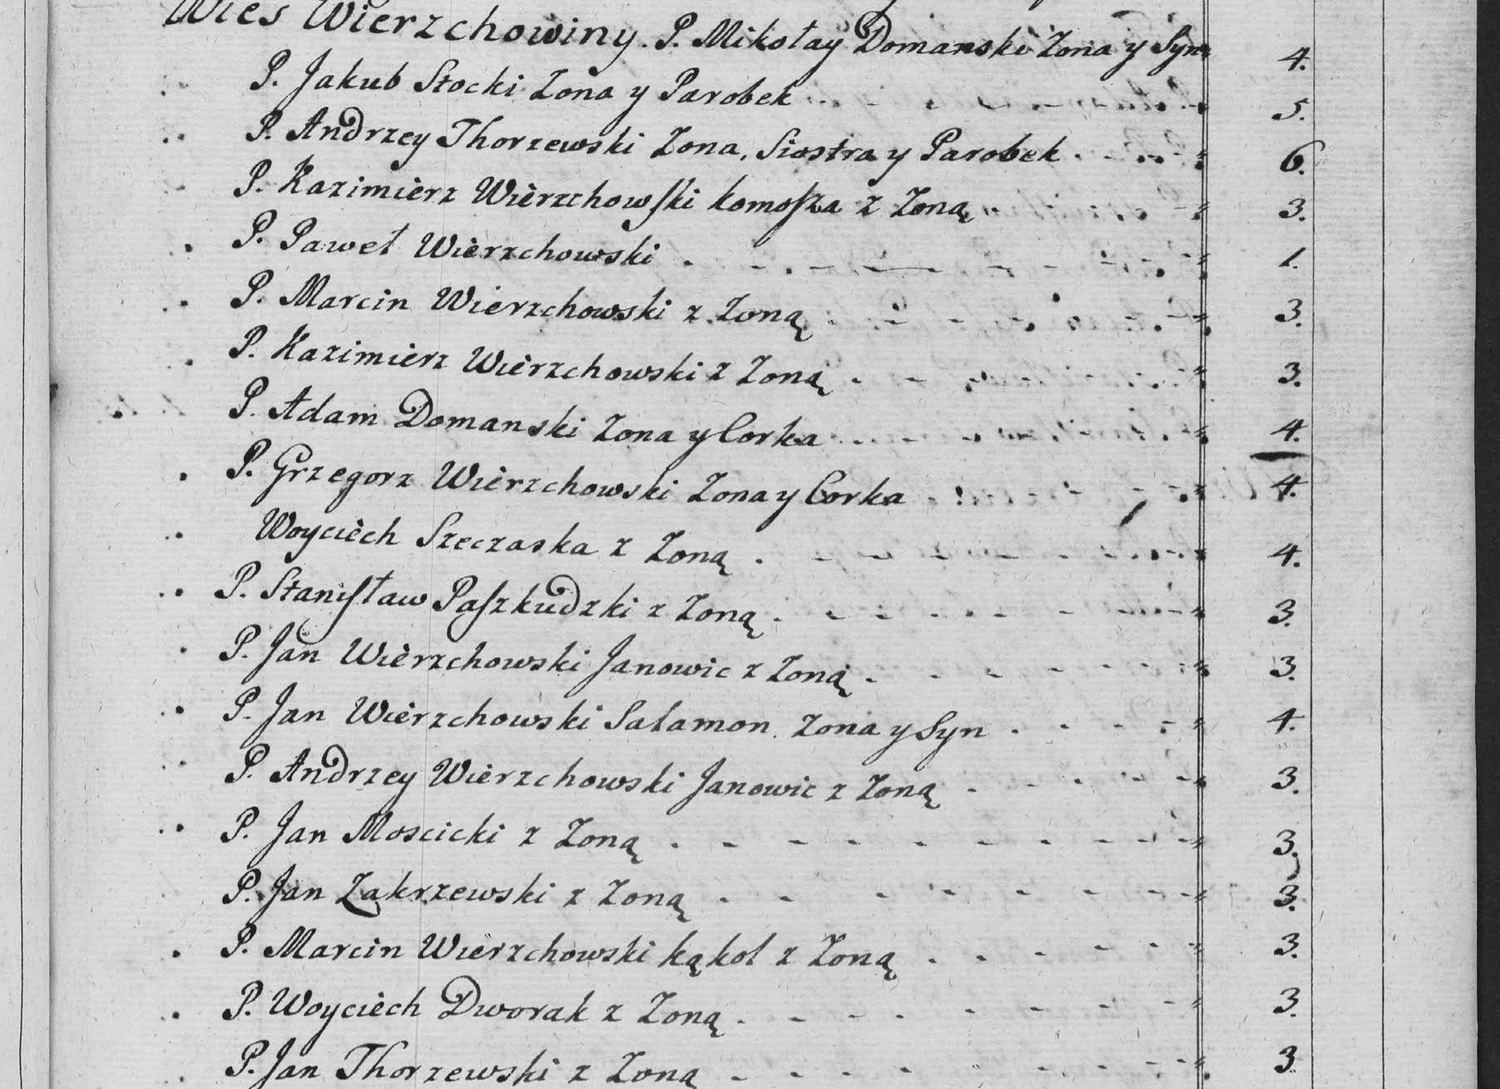 Wies Wierzchowiny. P. Mikołay Domanski Zona y Syn 4.
P. Jakub Stocki Zona y Parobek 5.
P. Andrzey Thorzewski Zona, Siostra y Parobek 6.
P. Kazimierz Wierzchowſki komoſza z Zoną 3.
P. Paweł Wierzchowski 1.
P. Marcin Wierzchowski z Zoną 3.
P. Kazimierz Wierzchowski z Zoną 3.
P. Adam Domanski Zona y Corka 4.
P. Grzegorz Wierzchowski Zona y Corka 4.
Woyciech Szczaska z Zoną 4.
P. Staniſław Paſzkudzki z Zoną 3.
P. Jan Wierzchowski Janowic z Zoną 3.
P. Jan Wierzchowski Salamon Zona y Syn 4.
P. Andrzey Wierzchowski Janowic z Zoną 3.
P. Jan Moscicki z Zoną 3.
P. Jan Zakrzewski z Zoną 3.
P. Marcin Wierzchowski kąkol z Zoną 3.
P. Woyciech Dworak z Zoną 3.
P. Jan Thorzewski z Zoną 3